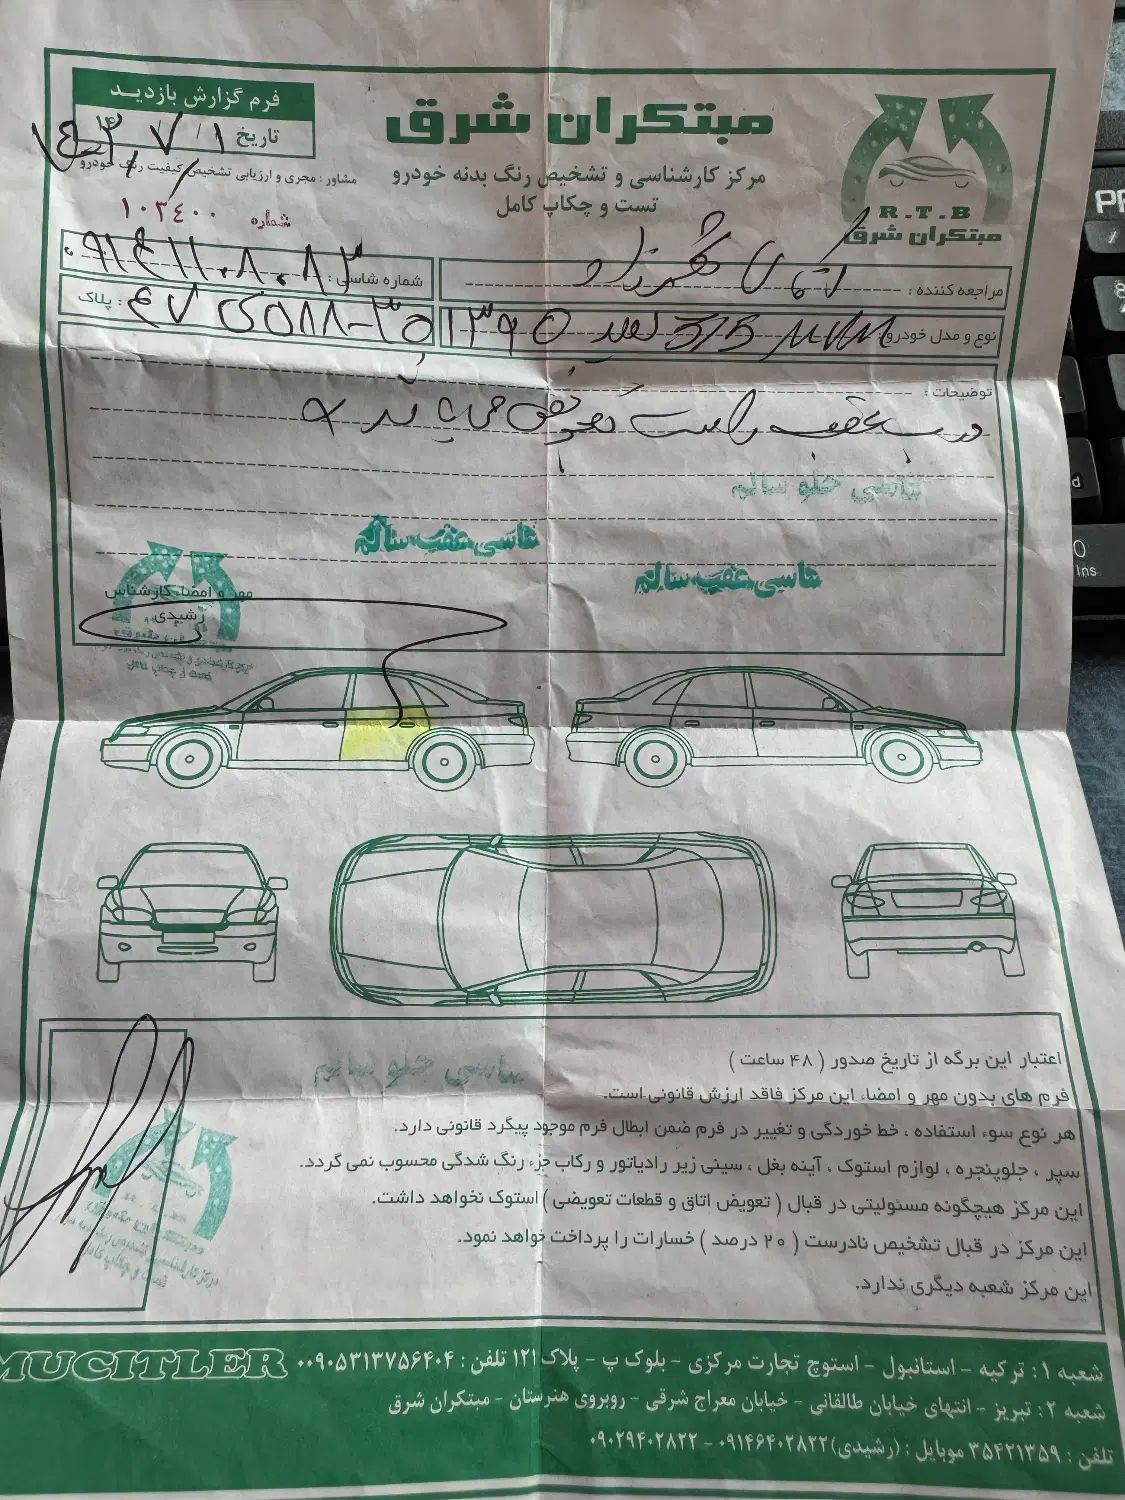 فرم گزارش بازدید
مبتکران شرق
تاریخ ۱۴۰۳/۷/۱
مرکز کارشناسی و تشخیص رنگ بدنه خودرو
مشاور : مجری و ارزیابی تشخیص کیفیت رنگ خودرو
تست و چکاپ کامل
R.T.B
مبتکران شرق
شماره ۱۰۳۴۰۰
مراجعه کننده : آقای
شماره شاسی :
نوع و مدل خودرو : MVM 315 سفید ۱۳۹۵
پلاک :
توضیحات :
درب عقب راست تعویض می باشد
شاسی جلو سالم
شاسی عقب سالم
شاسی عقب سالم
مهر و امضاء کارشناس
رشیدی
شاسی جلو سالم
اعتبار این برگه از تاریخ صدور ( ۴۸ ساعت )
فرم های بدون مهر و امضاء این مرکز فاقد ارزش قانونی است.
هر نوع سوء استفاده ، خط خوردگی و تغییر در فرم ضمن ابطال فرم موجود پیگرد قانونی دارد.
سپر ، جلوپنجره ، لوازم استوک ، آینه بغل ، سینی زیر رادیاتور و رکاب جزء رنگ شدگی محسوب نمی گردد.
این مرکز هیچگونه مسئولیتی در قبال ( تعویض اتاق و قطعات تعویضی ) استوک نخواهد داشت.
این مرکز در قبال تشخیص نادرست ( ۲۰ درصد ) خسارات را پرداخت خواهد نمود.
این مرکز شعبه دیگری ندارد.
شعبه ۱ : ترکیه - استانبول - استوچ تجارت مرکزی - بلوک پ - پلاک ۱۲۱ تلفن : ۰۰۹۰۵۳۱۳۷۵۶۴۰۴ MUCITLER
شعبه ۲ : تبریز - انتهای خیابان طالقانی - خیابان معراج شرقی - روبروی هنرستان - مبتکران شرق
تلفن : ۳۵۴۲۱۳۵۹ موبایل : (رشیدی) ۰۹۱۴۶۴۰۲۸۲۲ - ۰۹۰۲۹۴۰۲۸۲۲